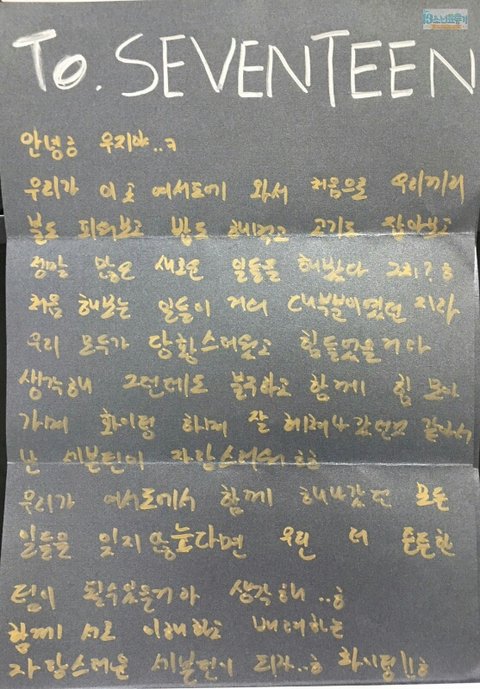 13소년표류기
To. SEVENTEEN
안녕ㅎ 우지야..ㅋ
우리가 이 곳 여서도에 와서 처음으로 우리끼리
불도 피워보고 밥도 해먹고 고기도 잡아보고
정말 많은 새로운 일들을 해봤다 그치?ㅎ
처음 해보는 일들이 거의 대부분이였던 지라
우리 모두가 당황스러웠고 힘들었을거라
생각해 그런데도 불구하고 함께 힘 모아
가며 화이팅 하며 잘 헤쳐나갔던것 같아서
난 세븐틴이 자랑스러워ㅎㅎ
우리가 여서도에서 함께 해나갔던 모든
일들을 잊지 않는다면 우린 더 돈독한
팀이 될수있을거라 생각해..ㅎ
함께 서로 이해하고 배려하는
자랑스러운 세븐틴이 되자..ㅎ 화이팅!!ㅎ